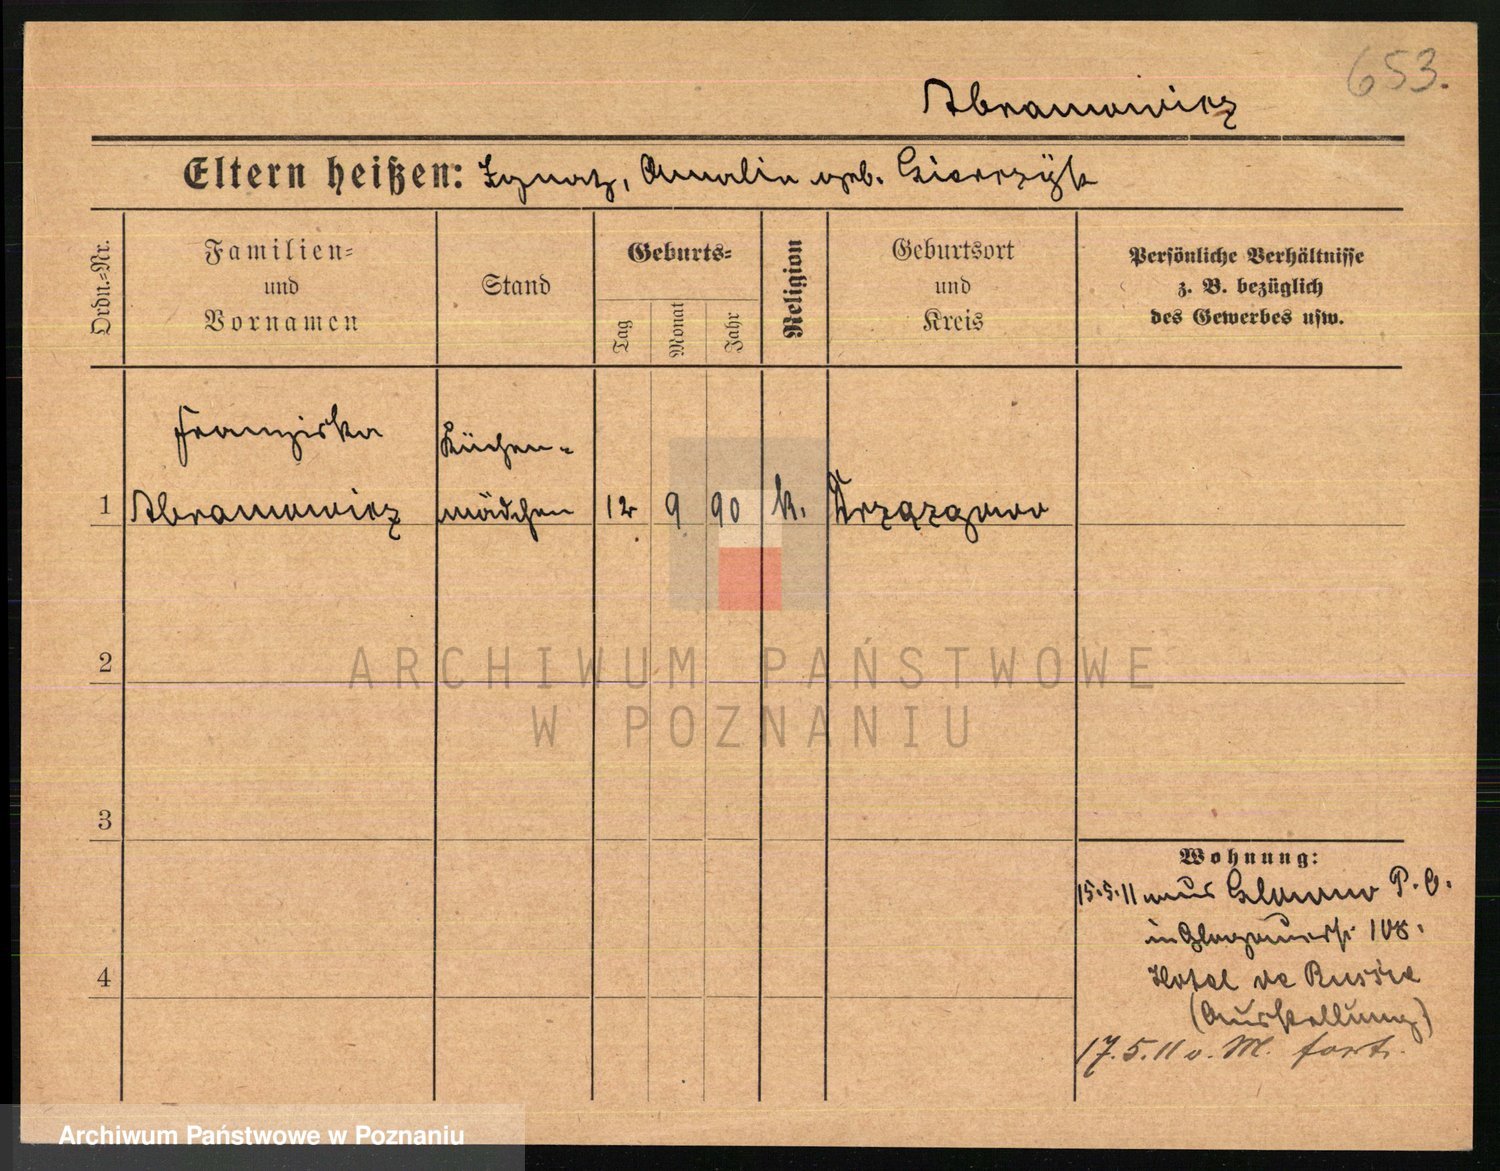 653.
Abramowicz
Eltern heißen: Ignatz, Amalia geb.
Ordn.=Nr.
Familien=
und
Vornamen
Stand
Geburts=
Tag
Monat
Jahr
Religion
Geburtsort
und
Kreis
Persönliche Verhältnisse
z. B. bezüglich
des Gewerbes usw.
Franziska
Küchen-
1 Abramowicz mädchen 12 9 90 k.
2
ARCHIWUM PAŃSTWOWE
W POZNANIU
3
Wohnung:
15.5.11 aus P. O.
in Glogauerstr. 108.
4
Hotel de Russie
(Ausstellung)
17.5.11 o. M. fort.
Archiwum Państwowe w Poznaniu